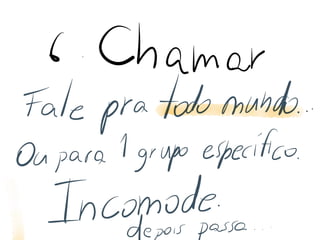 6. Chamar
Fale pra todo mundo...
Ou para 1 grupo específico.
Incomode.
depois passa...